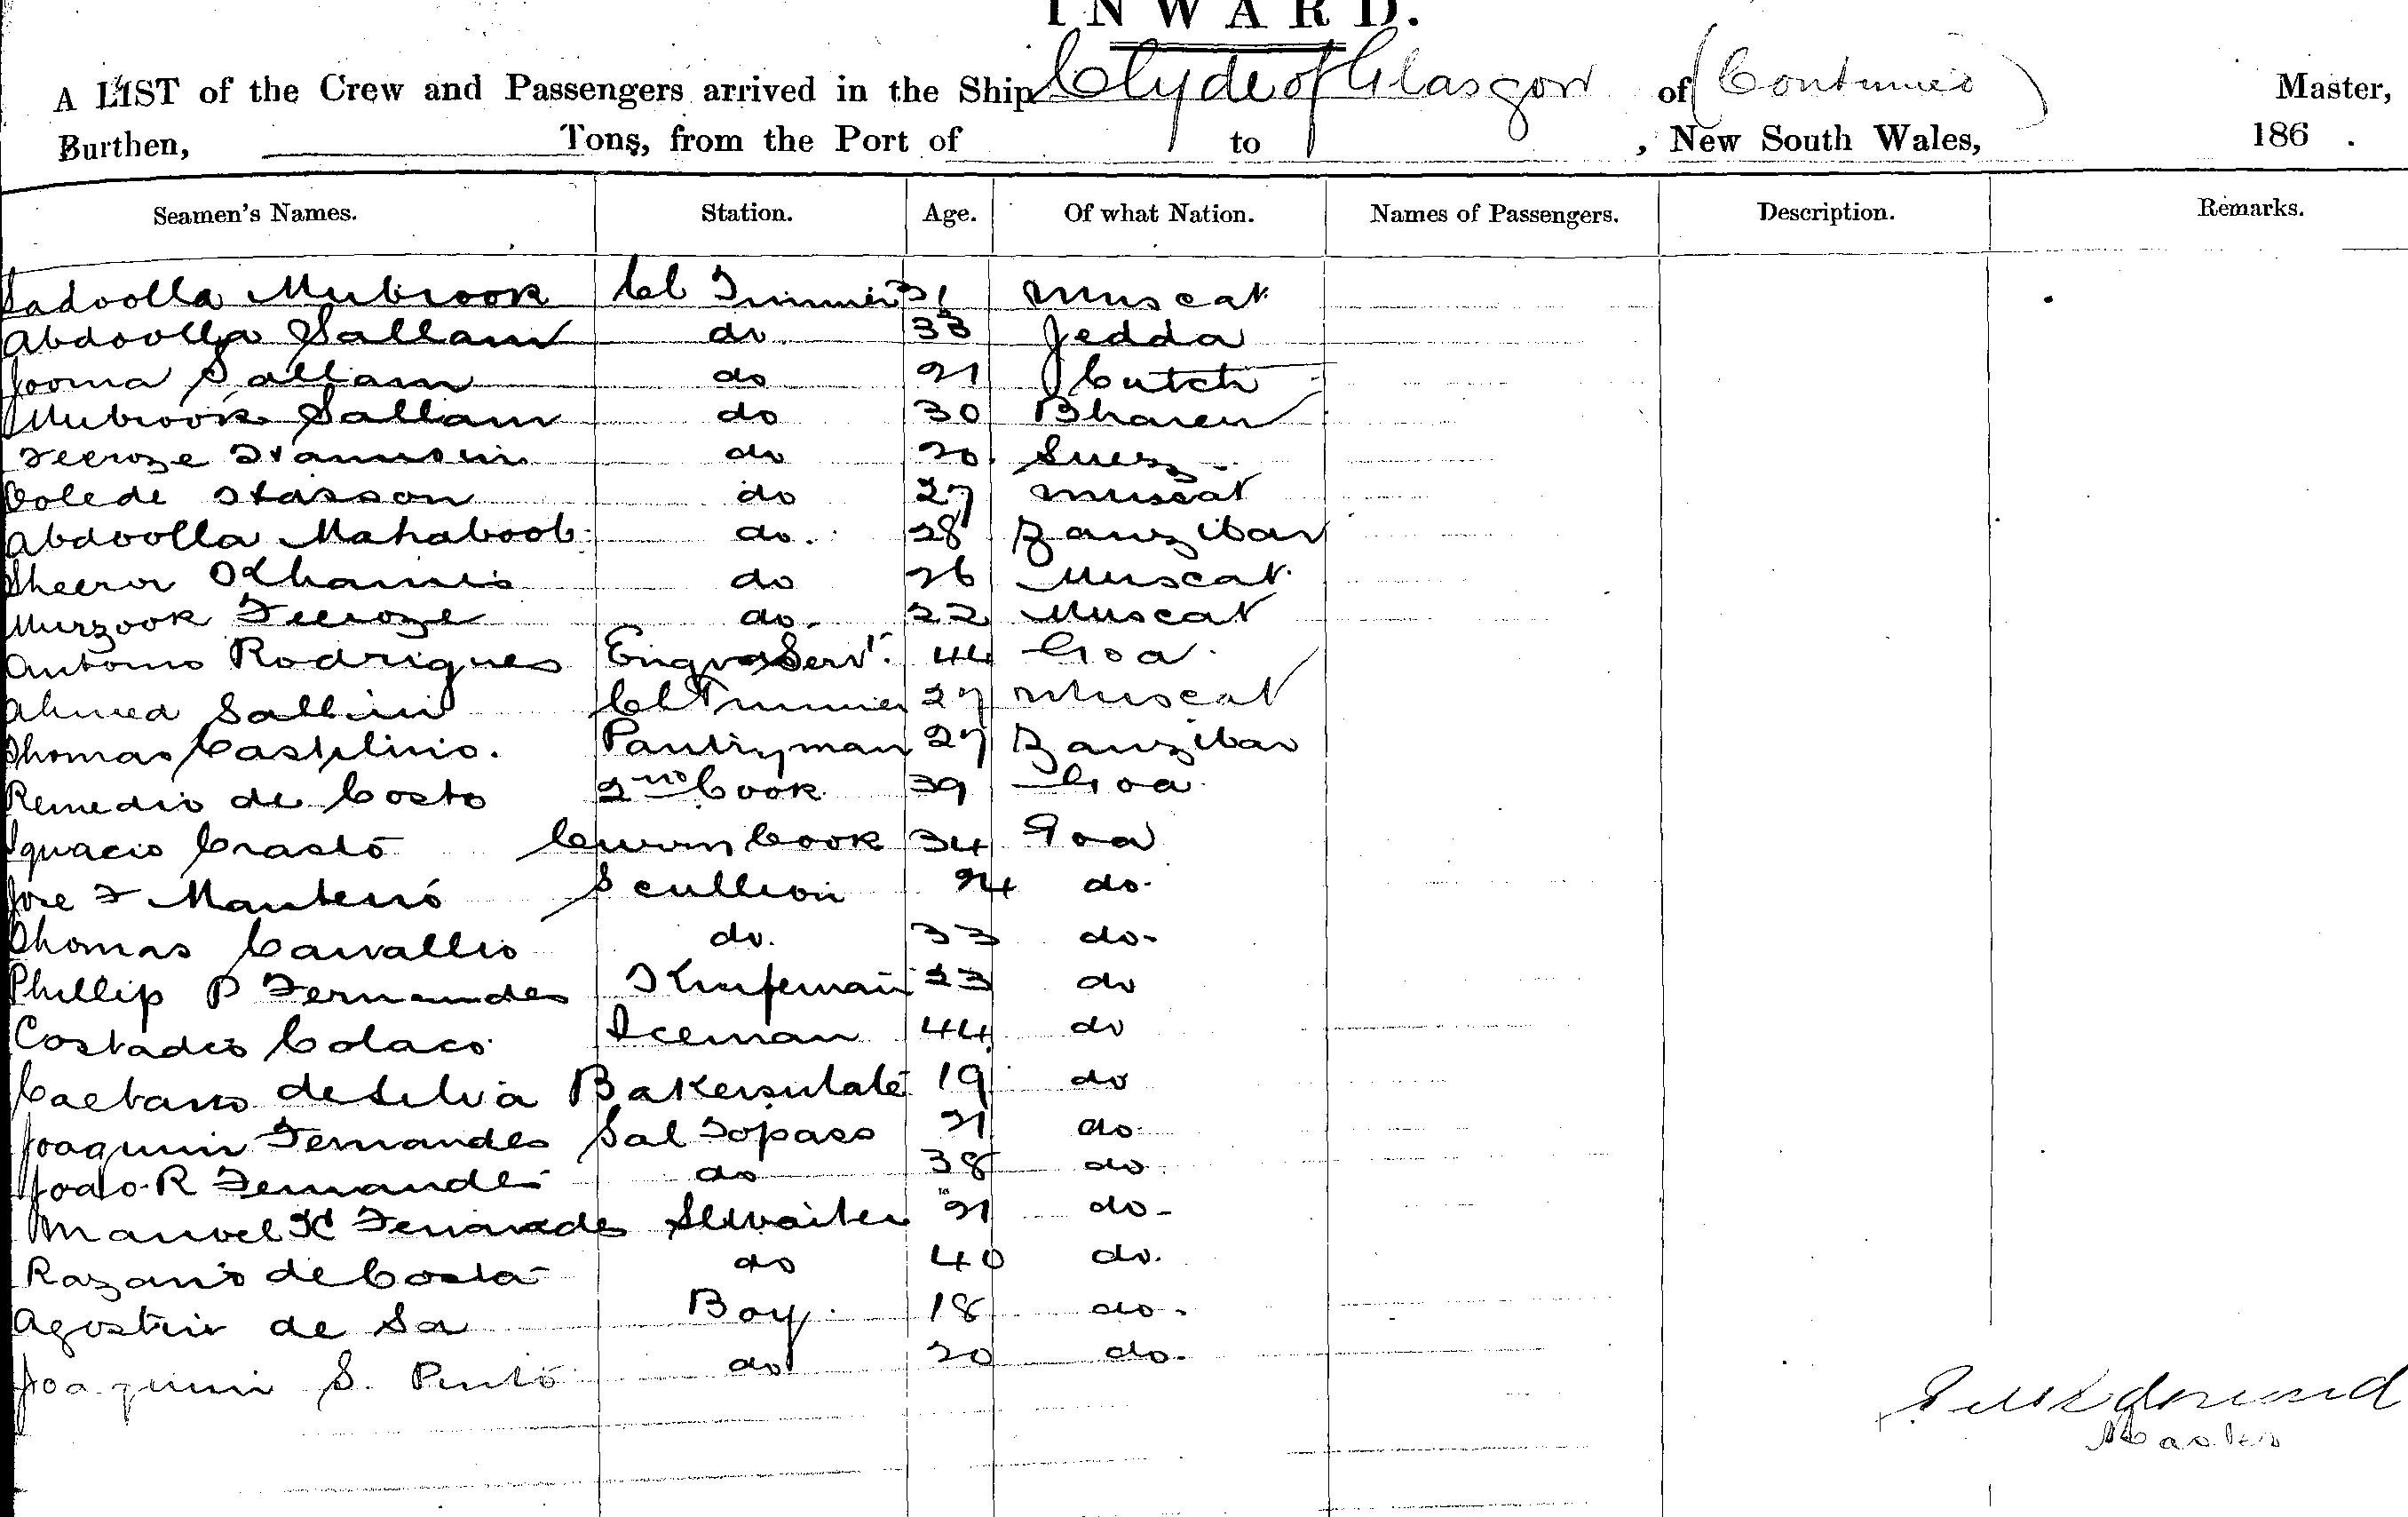 INWARD.
A LIST of the Crew and Passengers arrived in the Ship Clyde of Glasgow of (Continued) Master,
Burthen, Tons, from the Port of to , New South Wales, 186 .
Seamen's Names. Station. Age. Of what Nation. Names of Passengers. Description. Remarks.
Sadoolla Mubrook Cl Trimmer 31 Muscat
Abdoolla Sallam do 33 Jedda
Jooma Sallam do 21 Cutch
Mubrook Sallam do 30 Bharen
Feeroze do 20 Suez
Hasson do 27 Muscat
Abdoolla Mahaboob do. 28 Zanzibar
Khamis do 26 Muscat
Murzook Feeroze do. 22 Muscat
Antonio Rodrigues Engrs Servt. 44 Goa
Ahmed Sallim Cl Trimmer 27 Muscat
Thomas Castelino. Pantryman 27 Zanzibar
Remedio de Costa 2nd Cook 39 Goa
Ignacio Crasto Cook 34 Goa
Jose F Monteiro Scullion 24 do.
Thomas Carvallio do. 33 do.
Phillip P Fernandes Knifeman 23 do
Costadio Colaco Iceman 44 do
Caetano de Silva Bakersmate 19 do
Joaquim Fernandes Sal Topass 21 do
Joao R Fernandes do 38 do
Manoel X Fernandes Slwaiter 21 do
Razario de Costa do 40 do.
Agostin de Sa Boy. 18 do.
Joaquim S. Pinto do 20 do.
Master